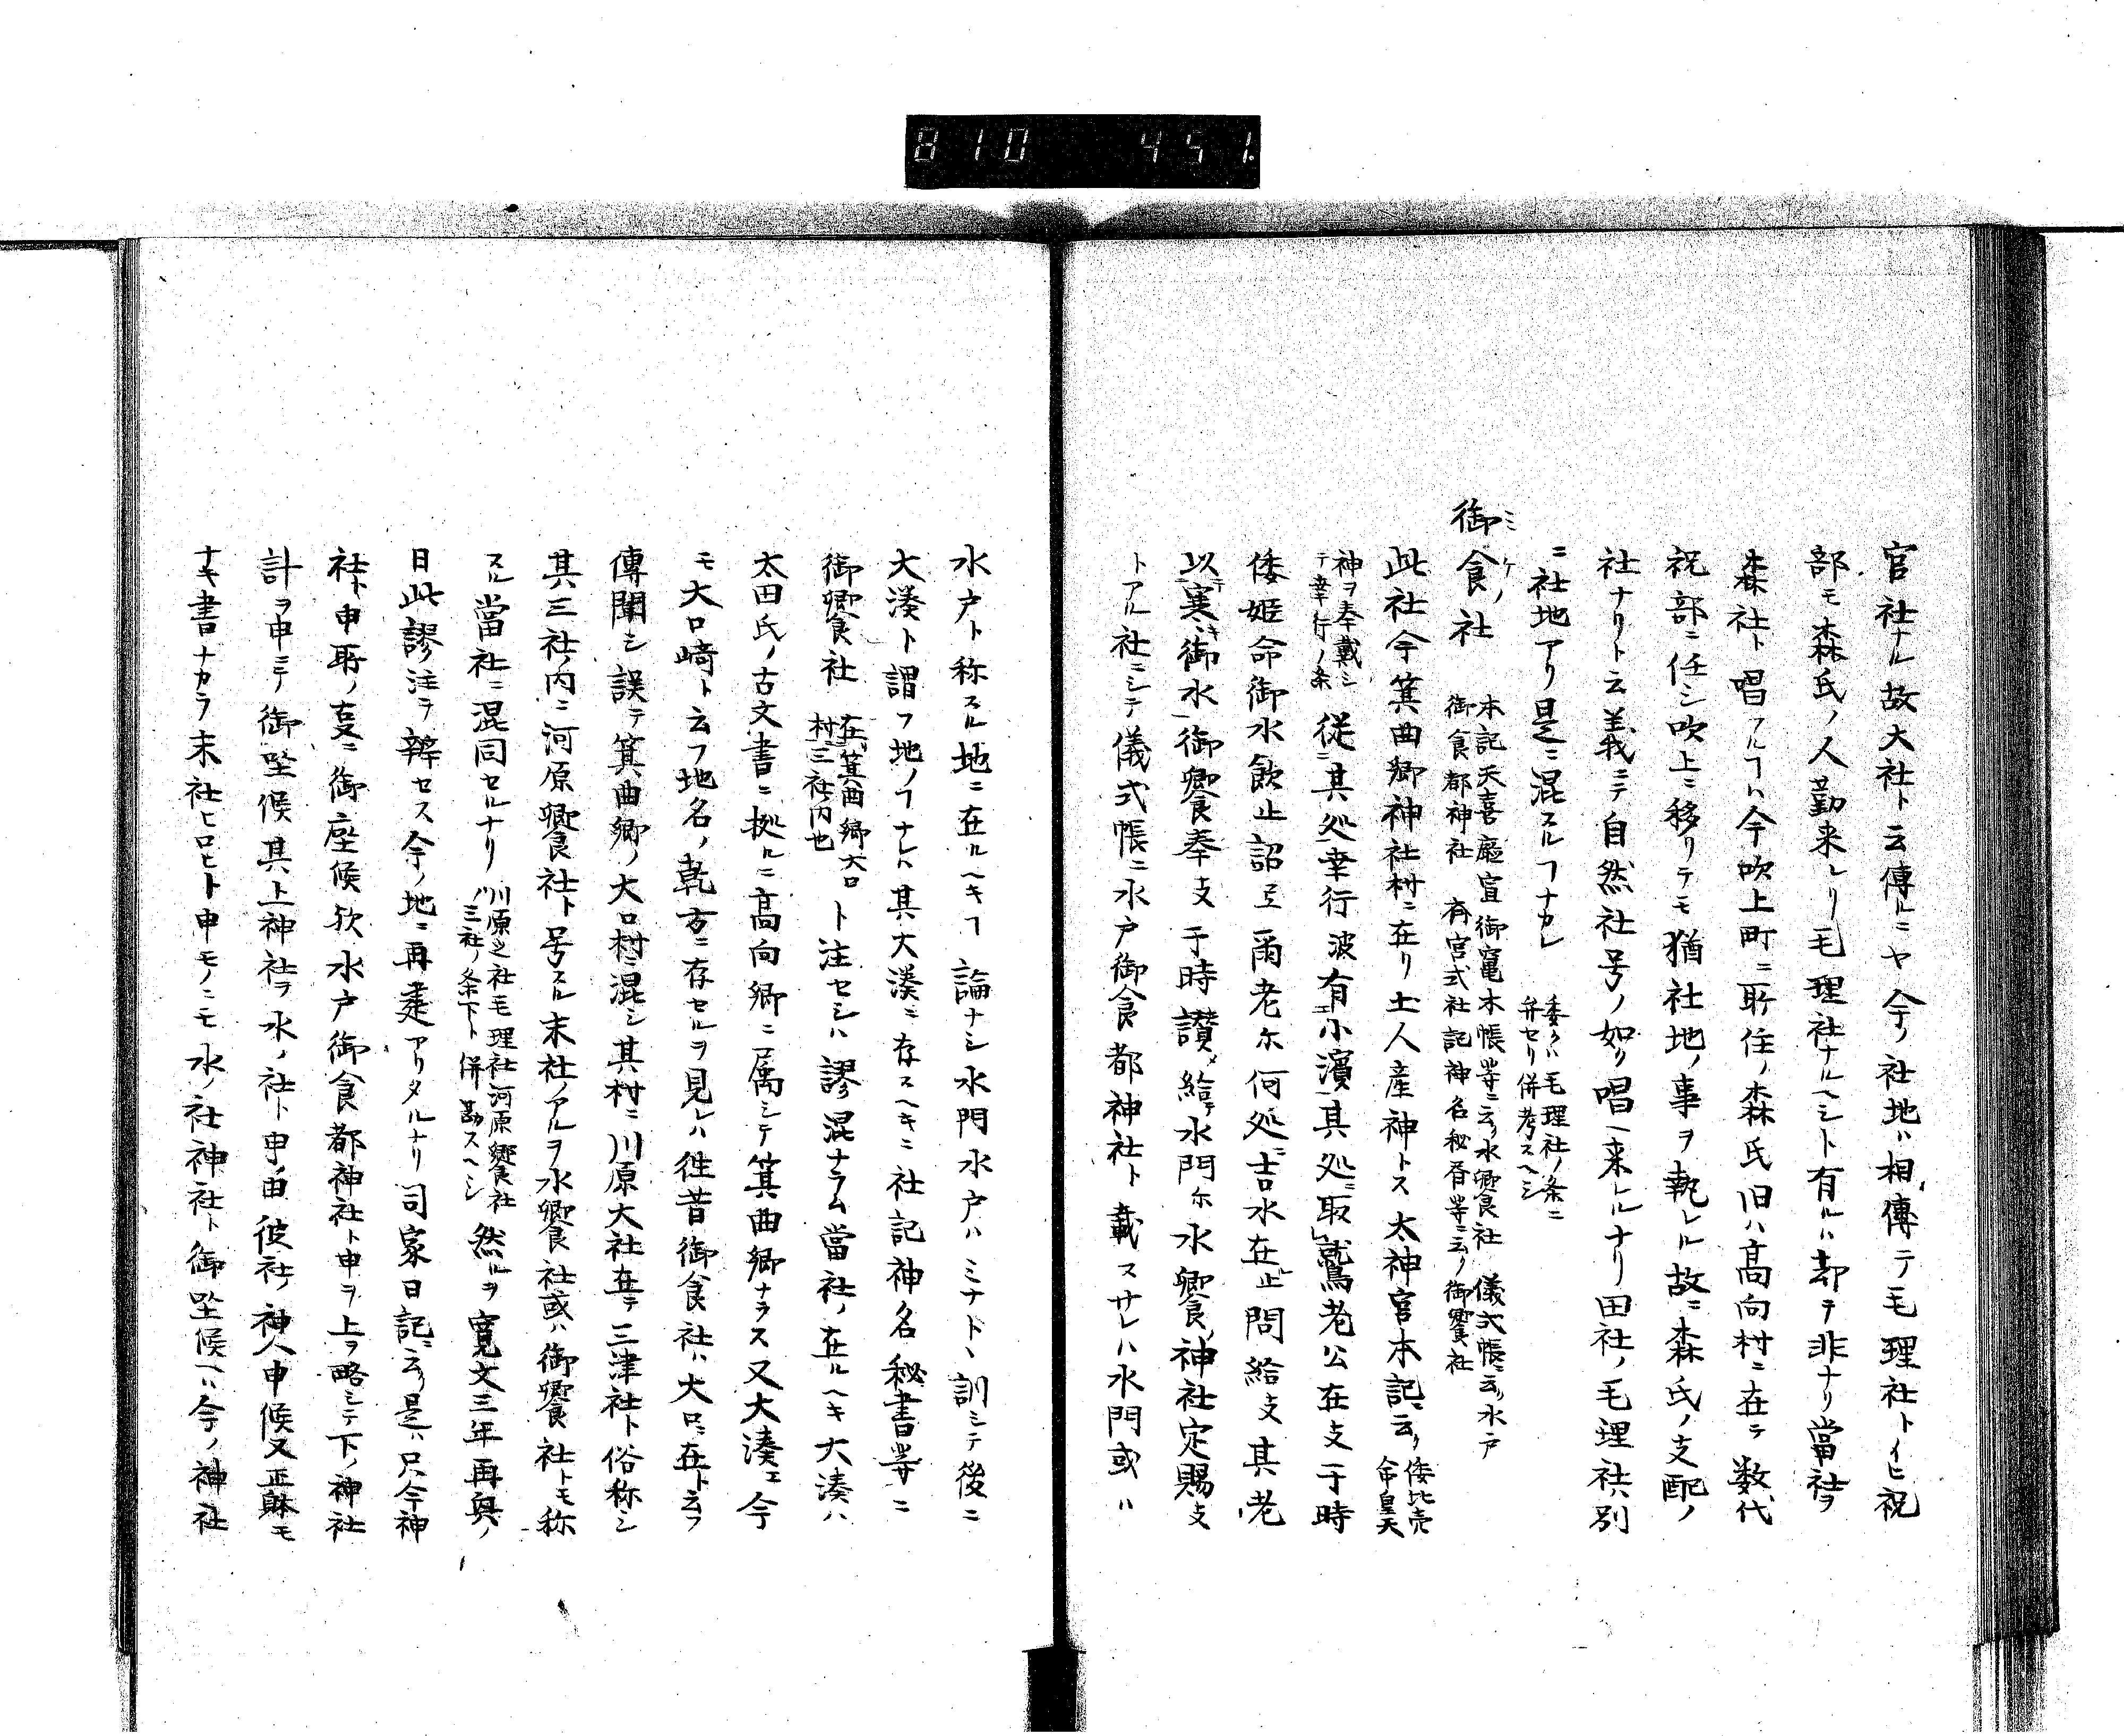 810 451.
官社ナル故大社ト云傳ルニヤ今ノ社地ハ相傳テ毛理社トイヒ祝
部モ森氏ノ人勤来レリ毛理社ナルヘシト有ルハ却テ非ナリ當社ヲ
森社ト唱フルヿハ今吹上町ニ所住ノ森氏旧ハ高向村ニ在テ数代
祝部ニ任シ吹上ニ移リテモ猶社地ノ事ヲ執レル故ニ森氏ノ支配ノ
社ナリト云義ニテ自然社号ノ如ク唱ヘ来レルナリ田社ノ毛理社ハ別
ニ社地アリ是ニ混スルヿナカレ
委クハ毛理社ノ条ニ
弁セリ併考スヘシ
御食社
ミケノ
本記天喜廰宣御竃木帳等ニ云水饗食社 儀式帳ニ云水戸
御食都神社 斎宮式社記神名秘書等ニ云御饗食社
此社今箕曲郷神社村ニ在リ土人産神トス太神宮本記ニ云ク
倭比売
命皇天
神ヲ奉戴シ
テ幸行ノ条
従其処幸行波有小濱其処ニ取鷲老公在支于時
倭姫命御水飲止詔弖爾老尓何処ニ吉水在止問給支其老
以寒御水御饗食奉支于時讃給テ水門尓水饗食神社定賜支
トアル社ニシテ儀式帳ニ水戸御食都神社ト載スサレハ水門或ハ
水戸ト称スル地ニ在ルヘキヿ論ナシ水門水戸ハミナトヽ訓シテ後ニ
大湊ト謂フ地ノヿナレハ其大湊ニ存スヘキニ社記神名秘書等ニ
御饗食社
在箕曲郷大口
村三社内也
ト注セシハ謬混ナラム當社ノ在ルヘキ大湊ハ
太田氏ノ古文書ニ拠ルニ高向郷ニ属シテ箕曲郷ナラス又大湊ニ今
モ大口崎ト云フ地名ノ乾方ニ存セルヲ見レハ往昔御食社ハ大口ニ在ト云ヲ
傳聞シ誤テ箕曲郷ノ大口村ニ混シ其村ニ川原大社在テ三津社ト俗称シ
其三社ノ内ニ河原饗食社ト号スル末社ノアルヲ水饗食社或ハ御饗食社トモ称
スル當社ニ混同セルナリ
川原之社毛理社河原饗食社
ノ三社ノ条下ト併勘スヘシ
然ルヲ寛文三年再興ノ
日此謬注ヲ辨セス今ノ地ニ再建アリタルナリ司家日記ニ云是ハ只今神
社ト申所ノ変ニ御座候歟水戸御食都神社ト申ヲ上ヲ略シテ下ノ神社
計ヲ申ニテ御坐候其上神社ヲ水ノ社ト申由彼社ノ神人申候又正躰モ
ナキ書ナカラ末社ヒロヒト申モノニモ水ノ社神社ト御坐候ヘハ今ノ神社